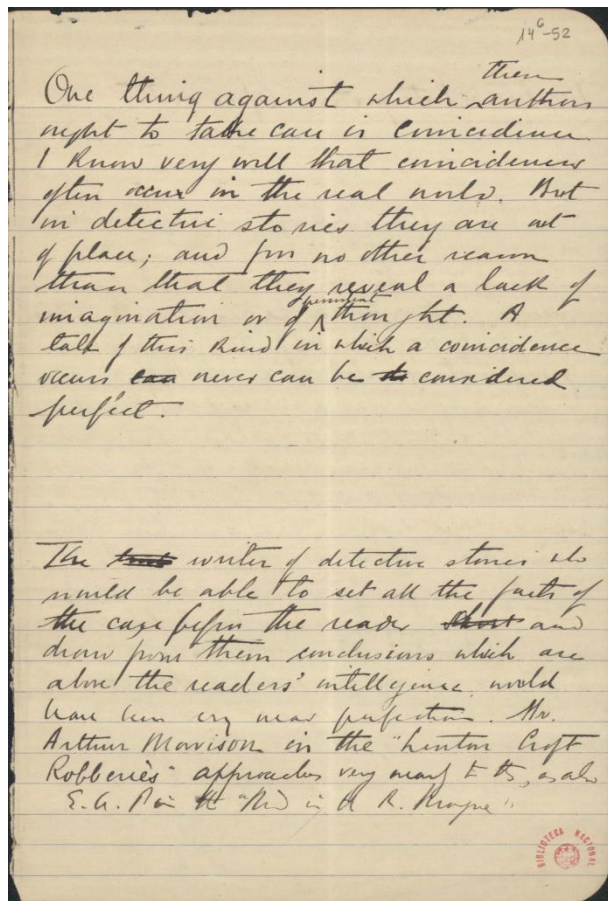 14⁶-52
these
One thing against which authors
ought to take care is coincidence.
I know very well that coincidences
often occur in the real world. But
in detective stories they are out
of place; and for no other reason
than that they reveal a lack of
imagination or of thought. A
tale of this kind in which a coincidence
occurs never can be considered
perfect.
The writer of detective stories who
would be able to set all the facts of
the case before the reader and
draw from them conclusions which are
above the readers' intelligence, would
have been very near perfection. Mr.
Arthur Morrison in the "Lenton Croft
Robberies" approaches very near to this, as also
E. A. Poe in the
BIBLIOTECA NACIONAL